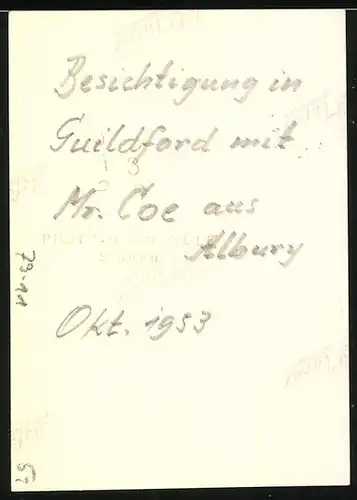 Besichtigung in
Guildford mit
Mr. Coe aus
Albury
Okt. 1953